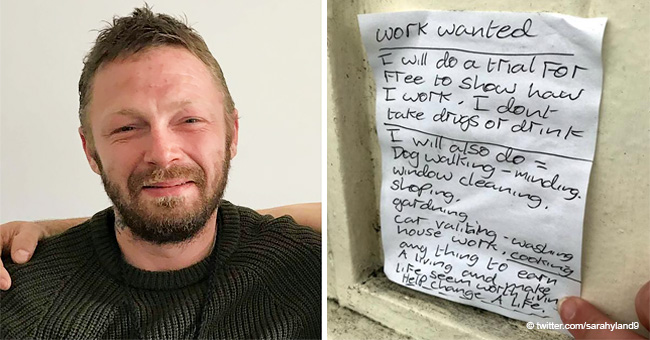 work wanted
I will do a trial For
Free to show haw
I work. I dont
take drugs or drink
I will also do =
Dog walking - minding.
window cleaning.
shoping.
gardning
car valiting - washing
house work. cooking
any thing to earn
A living and make
life seem worth livin
Help change A life.
© twitter.com/sarahyland9